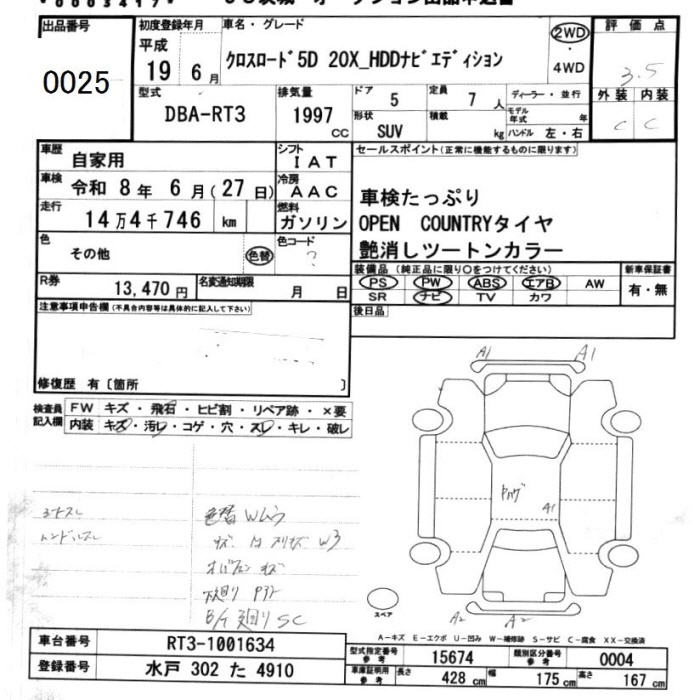 出品番号
0025
初度登録年月
平成
19 6 月
車名・グレード
クロスロード5D 20X_HDDナビエディション
2WD
・
4WD
評価点
3.5
外装 内装
C C
型式
DBA-RT3
排気量
1997 CC
ドア 5
定員 7 人
形状 SUV
積載 kg
ディーラー・並行
モデル年式 年
ハンドル 左・右
車歴 自家用
車検 令和 8 年 6 月 (27 日)
走行 14 万 4 千 746 km
シフト I A T
冷房 A A C
燃料 ガソリン
セールスポイント(正常に機能するものに限ります)
車検たっぷり
OPEN COUNTRYタイヤ
艶消しツートンカラー
色 その他 色替
色コード ?
R券 13,470 円
名変通知期限 月 日
装備品 (純正品に限り○をつけてください)
PS PW ABS エアB AW
SR ナビ TV カワ
新車保証書
有・無
後日品
注意事項申告欄(不具合内容等は具体的に記入して下さい)
修復歴 有〔箇所 〕
検査員記入欄
FW キズ・飛石・ヒビ割・リペア跡・×要
内装 キズ・汚レ・コゲ・穴・スレ・キレ・破レ
A1 A1
A1
A2 A2
スペア
色替
W3
下廻り
SC
A-キズ E-エクボ U-凹み W-補修跡 S-サビ C-腐食 XX-交換済
車台番号 RT3-1001634
登録番号 水戸 302 た 4910
型式指定番号 参考 15674
類別区分番号 参考 0004
車庫証明用 参考 長さ 428 cm 幅 175 cm 高さ 167 cm